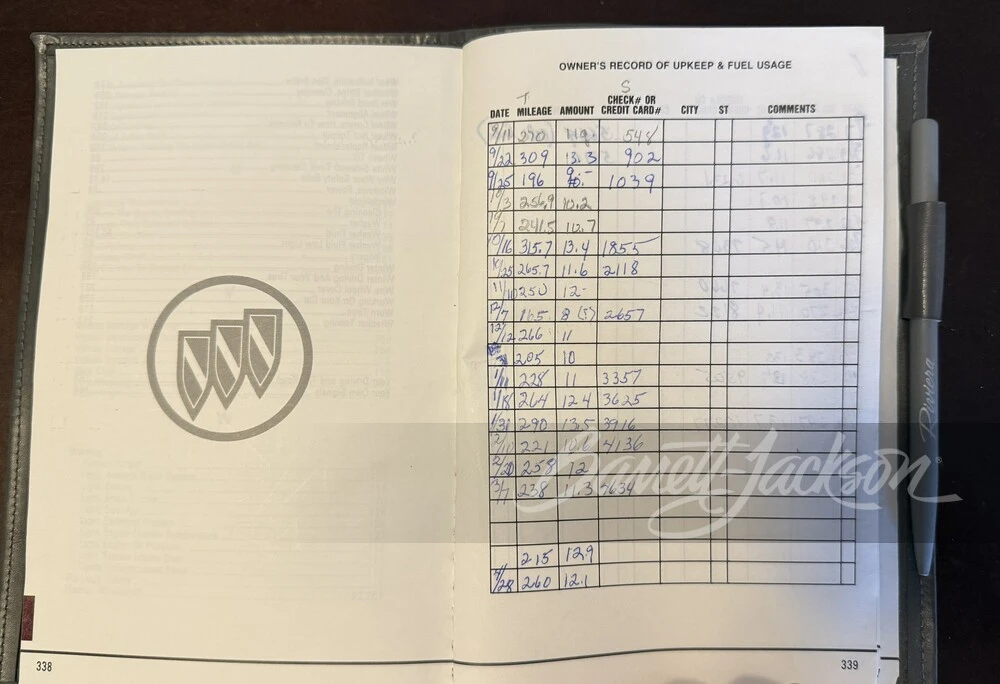 OWNER'S RECORD OF UPKEEP & FUEL USAGE
T S
DATE MILEAGE AMOUNT CHECK# OR CREDIT CARD# CITY ST COMMENTS
9/11 270 548
9/22 309 13.3 902
9/25 196 1039
10/3 256.9 10.2
241.5 10.7
10/16 315.7 13.4 1855
10/25 265.7 11.6 2118
11/10 250 12-
12/7 16.5 8 (5) 2657
12/12 266 11
205 10
228 11 3357
1/18 264 12.4 3625
1/31 290 13.5 3916
2/11 221 10.6 4136
2/20 258 12
3/7 238 11.3
215 12.9
4/28 260 12.1
Barrett-Jackson
Riviera
338
339